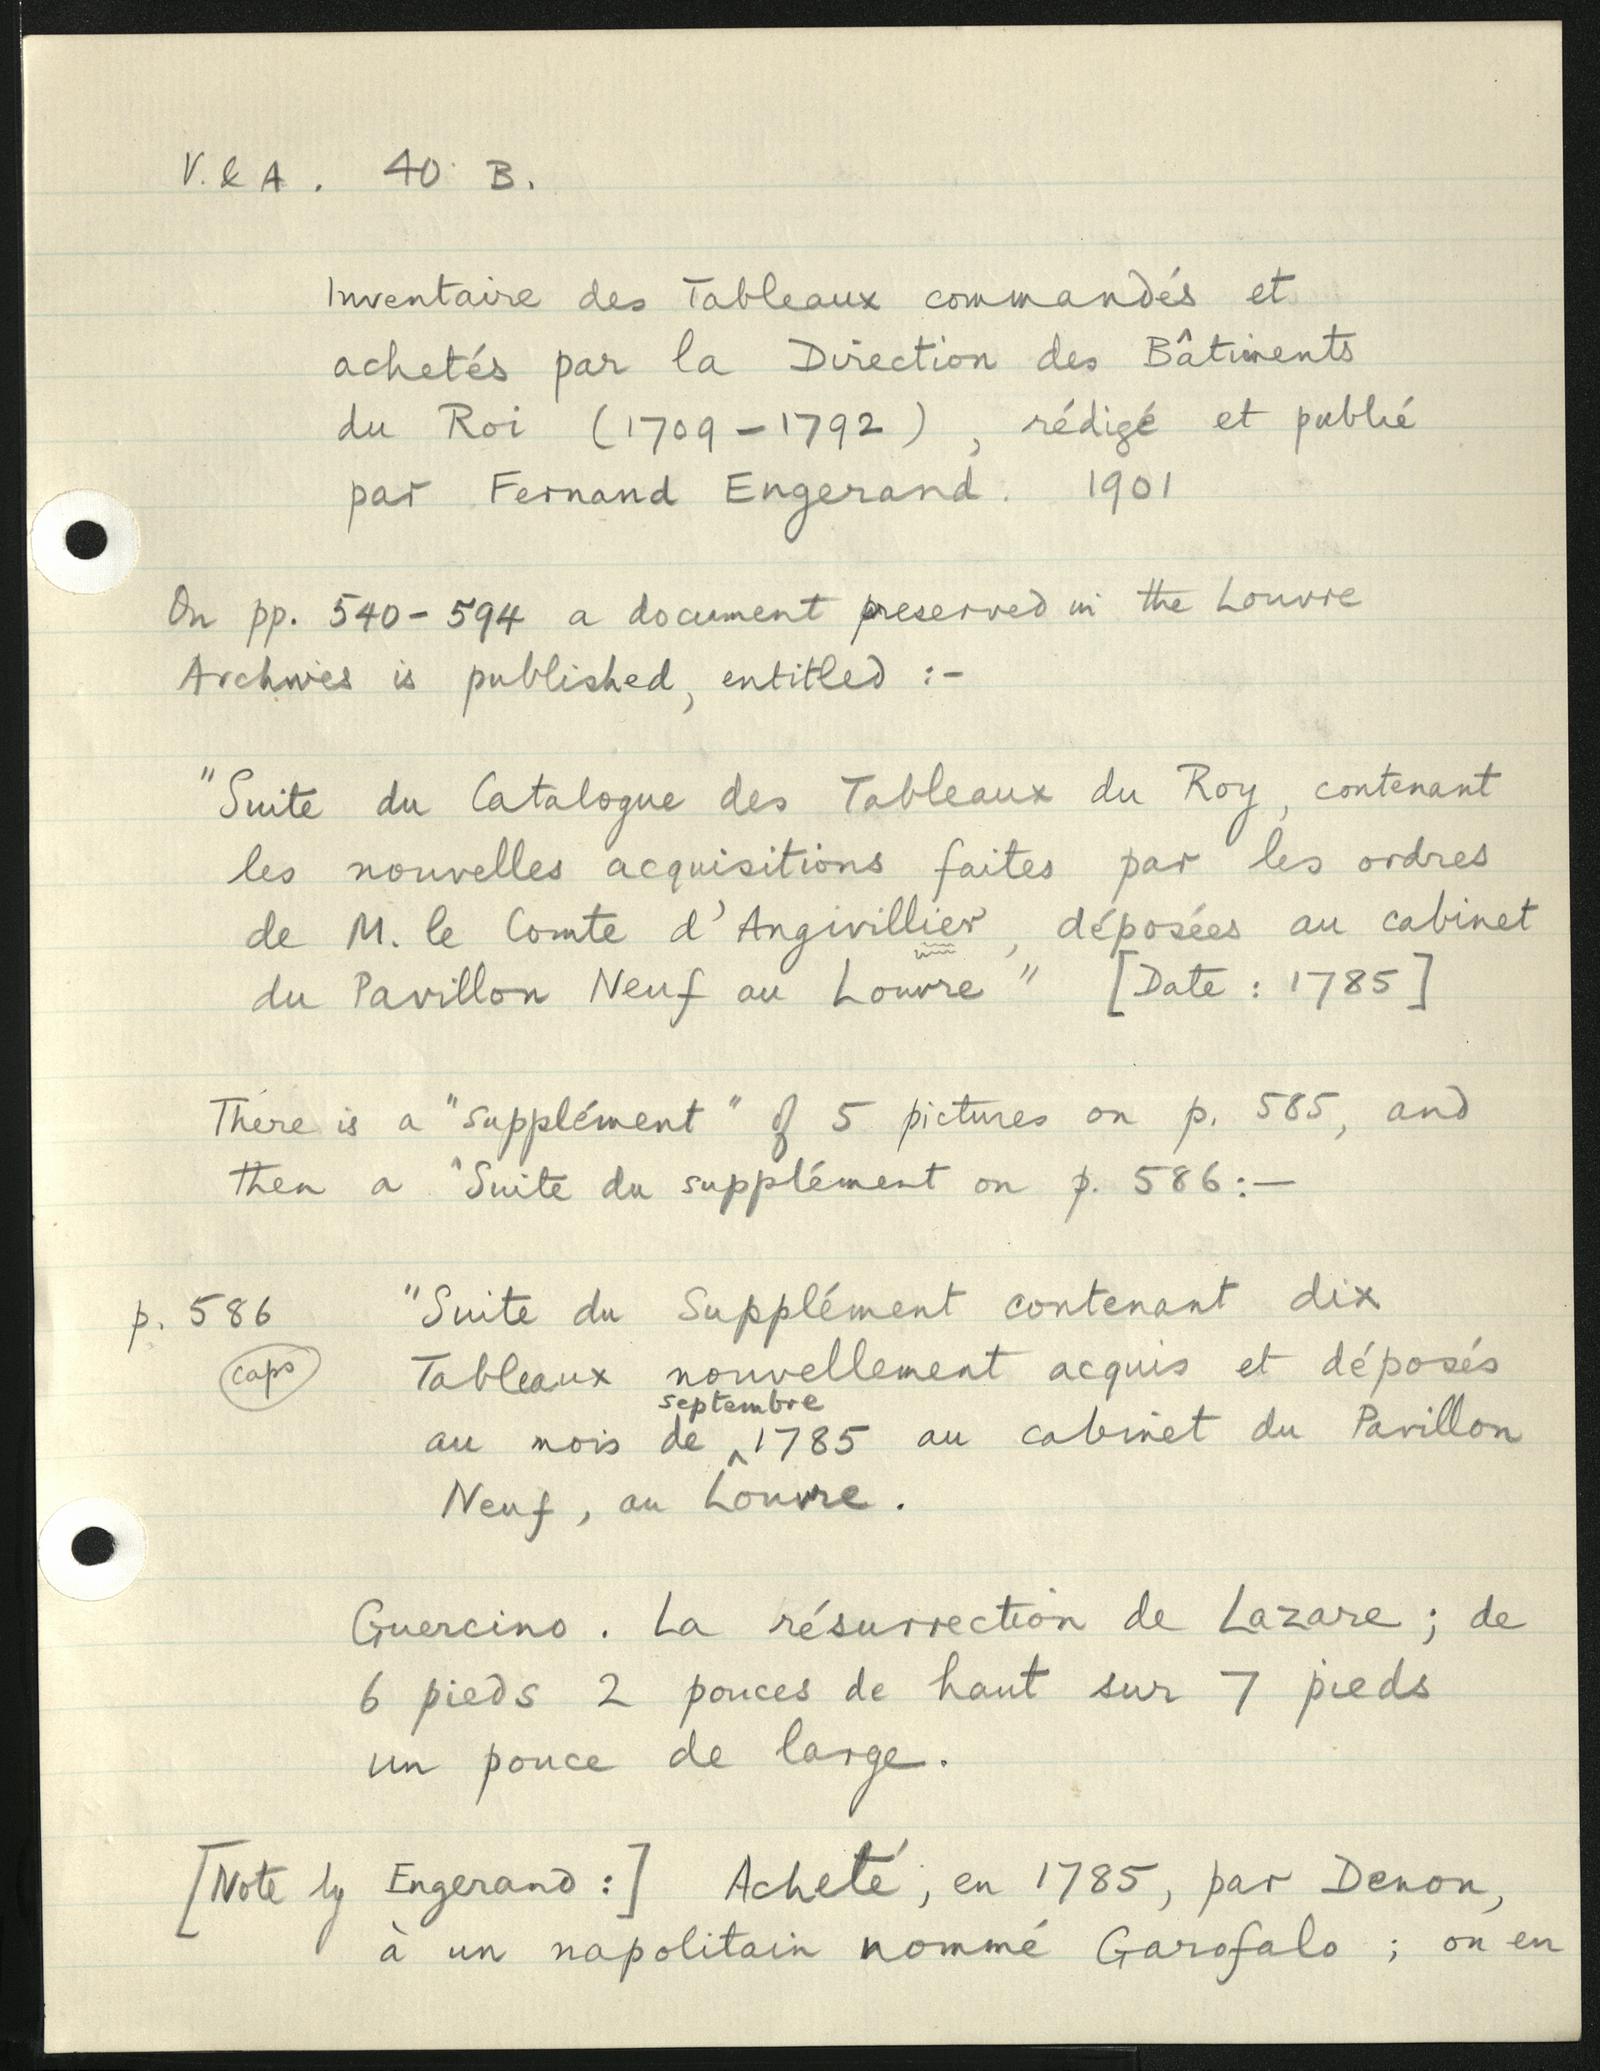 V. & A. 40 B.
Inventaire des Tableaux commandés et
achetés par la Direction des Bâtiments
du Roi (1709-1792), rédigé et publié
par Fernand Engerand. 1901
On pp. 540-594 a document preserved in the Louvre
Archives is published, entitled :-
"Suite du Catalogue des Tableaux du Roy, contenant
les nouvelles acquisitions faites par les ordres
de M. le Comte d'Angivillier, déposées au cabinet
du Pavillon Neuf au Louvre" [Date : 1785]
There is a "supplément" of 5 pictures on p. 585, and
then a "Suite du supplément on p. 586:-
p. 586 "Suite du Supplément contenant dix
caps Tableaux nouvellement acquis et déposés
septembre
au mois de ^ 1785 au cabinet du Pavillon
Neuf, au Louvre.
Guercino. La résurrection de Lazare ; de
6 pieds 2 pouces de haut sur 7 pieds
un pouce de large.
[Note by Engerand :] Acheté, en 1785, par Denon,
à un napolitain nommé Garofalo ; on en